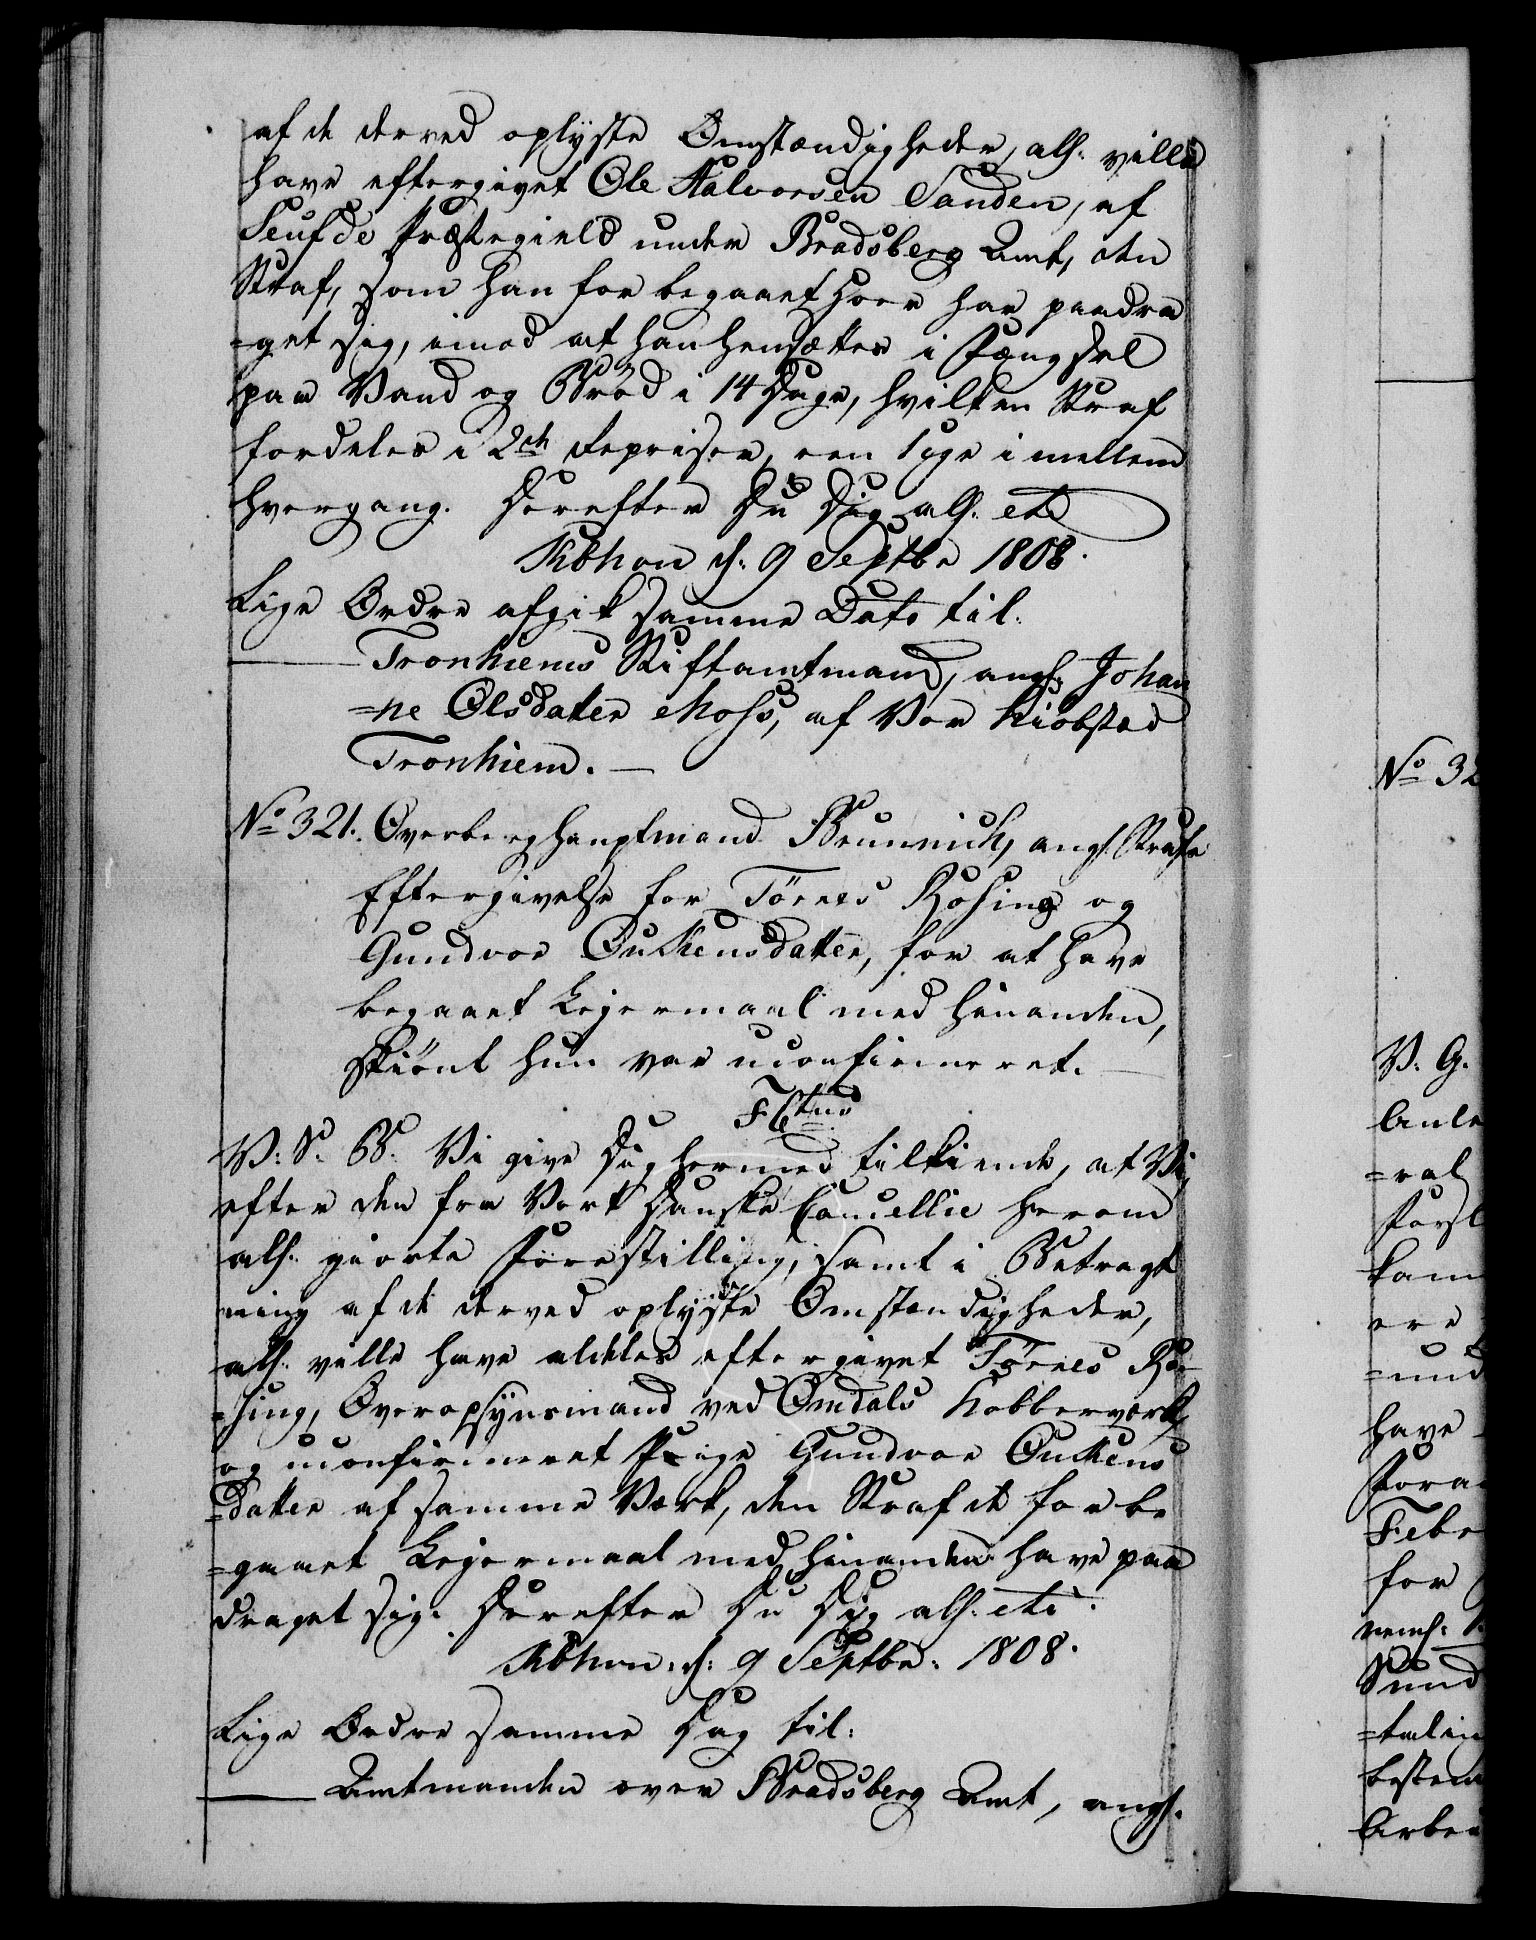 af de derved oplyste Omstændigheder, alh: ville
have eftergivet Ole Halvorsen Sanden, af
Seufde Præstegield under Bradsberg Amt, den
Straf, som han for begaaet Hoer har paadra
=get sig, imod at han hensættes i Fængsel
paa Vand og Brød i 14 Dage, hvilken Straf
fordeles i 2de Repriser, een Uge imellem
hvergang. Derefter Du Dig alh. etc
Kbhvn d: 9 Septbr 1808.
Lige Ordre afgik samme Dato til.
Tronhiems Stiftamtmand, angl: Johan
=ne Olsdatter Moss, af Vor Kiøbstæd
Tronhiem. —
No 321. Overberghauptmand Brunnich, angl. Strafs
Eftergivelse for Törres Rosing og
Gundvor Ouckensdatter, for at have
begaaet Lejermaal med hinanden,
skiönt hun var uconfirmeret.
V: S. B. Vi give Dig hermed tilkiende, at Vi,
efter den fra Vort Danske Cancellie herom
alh: giorte Forestilling, samt i Betragt
ning af de derved oplyste Omstændigheder,
alh. ville have aldeles eftergivet Törres Ro-
=sing, Overopsynsmand ved Omdals Kobberværk,
og uconfirmeret Pige Gundvor Ouckens
=datter af samme Værk, den Straf de for be
=gaaet Lejermaal med hinanden have paa
draget sig. Derefter Du Dig alh. etc.
Kbhvn: d: 9 Septbr: 1808.
Lige Ordre samme Dag til:
Amtmanden over Bradsberg Amt, angl.
No 32
V. G.
=ral
ere
have
Febr
for
Sund